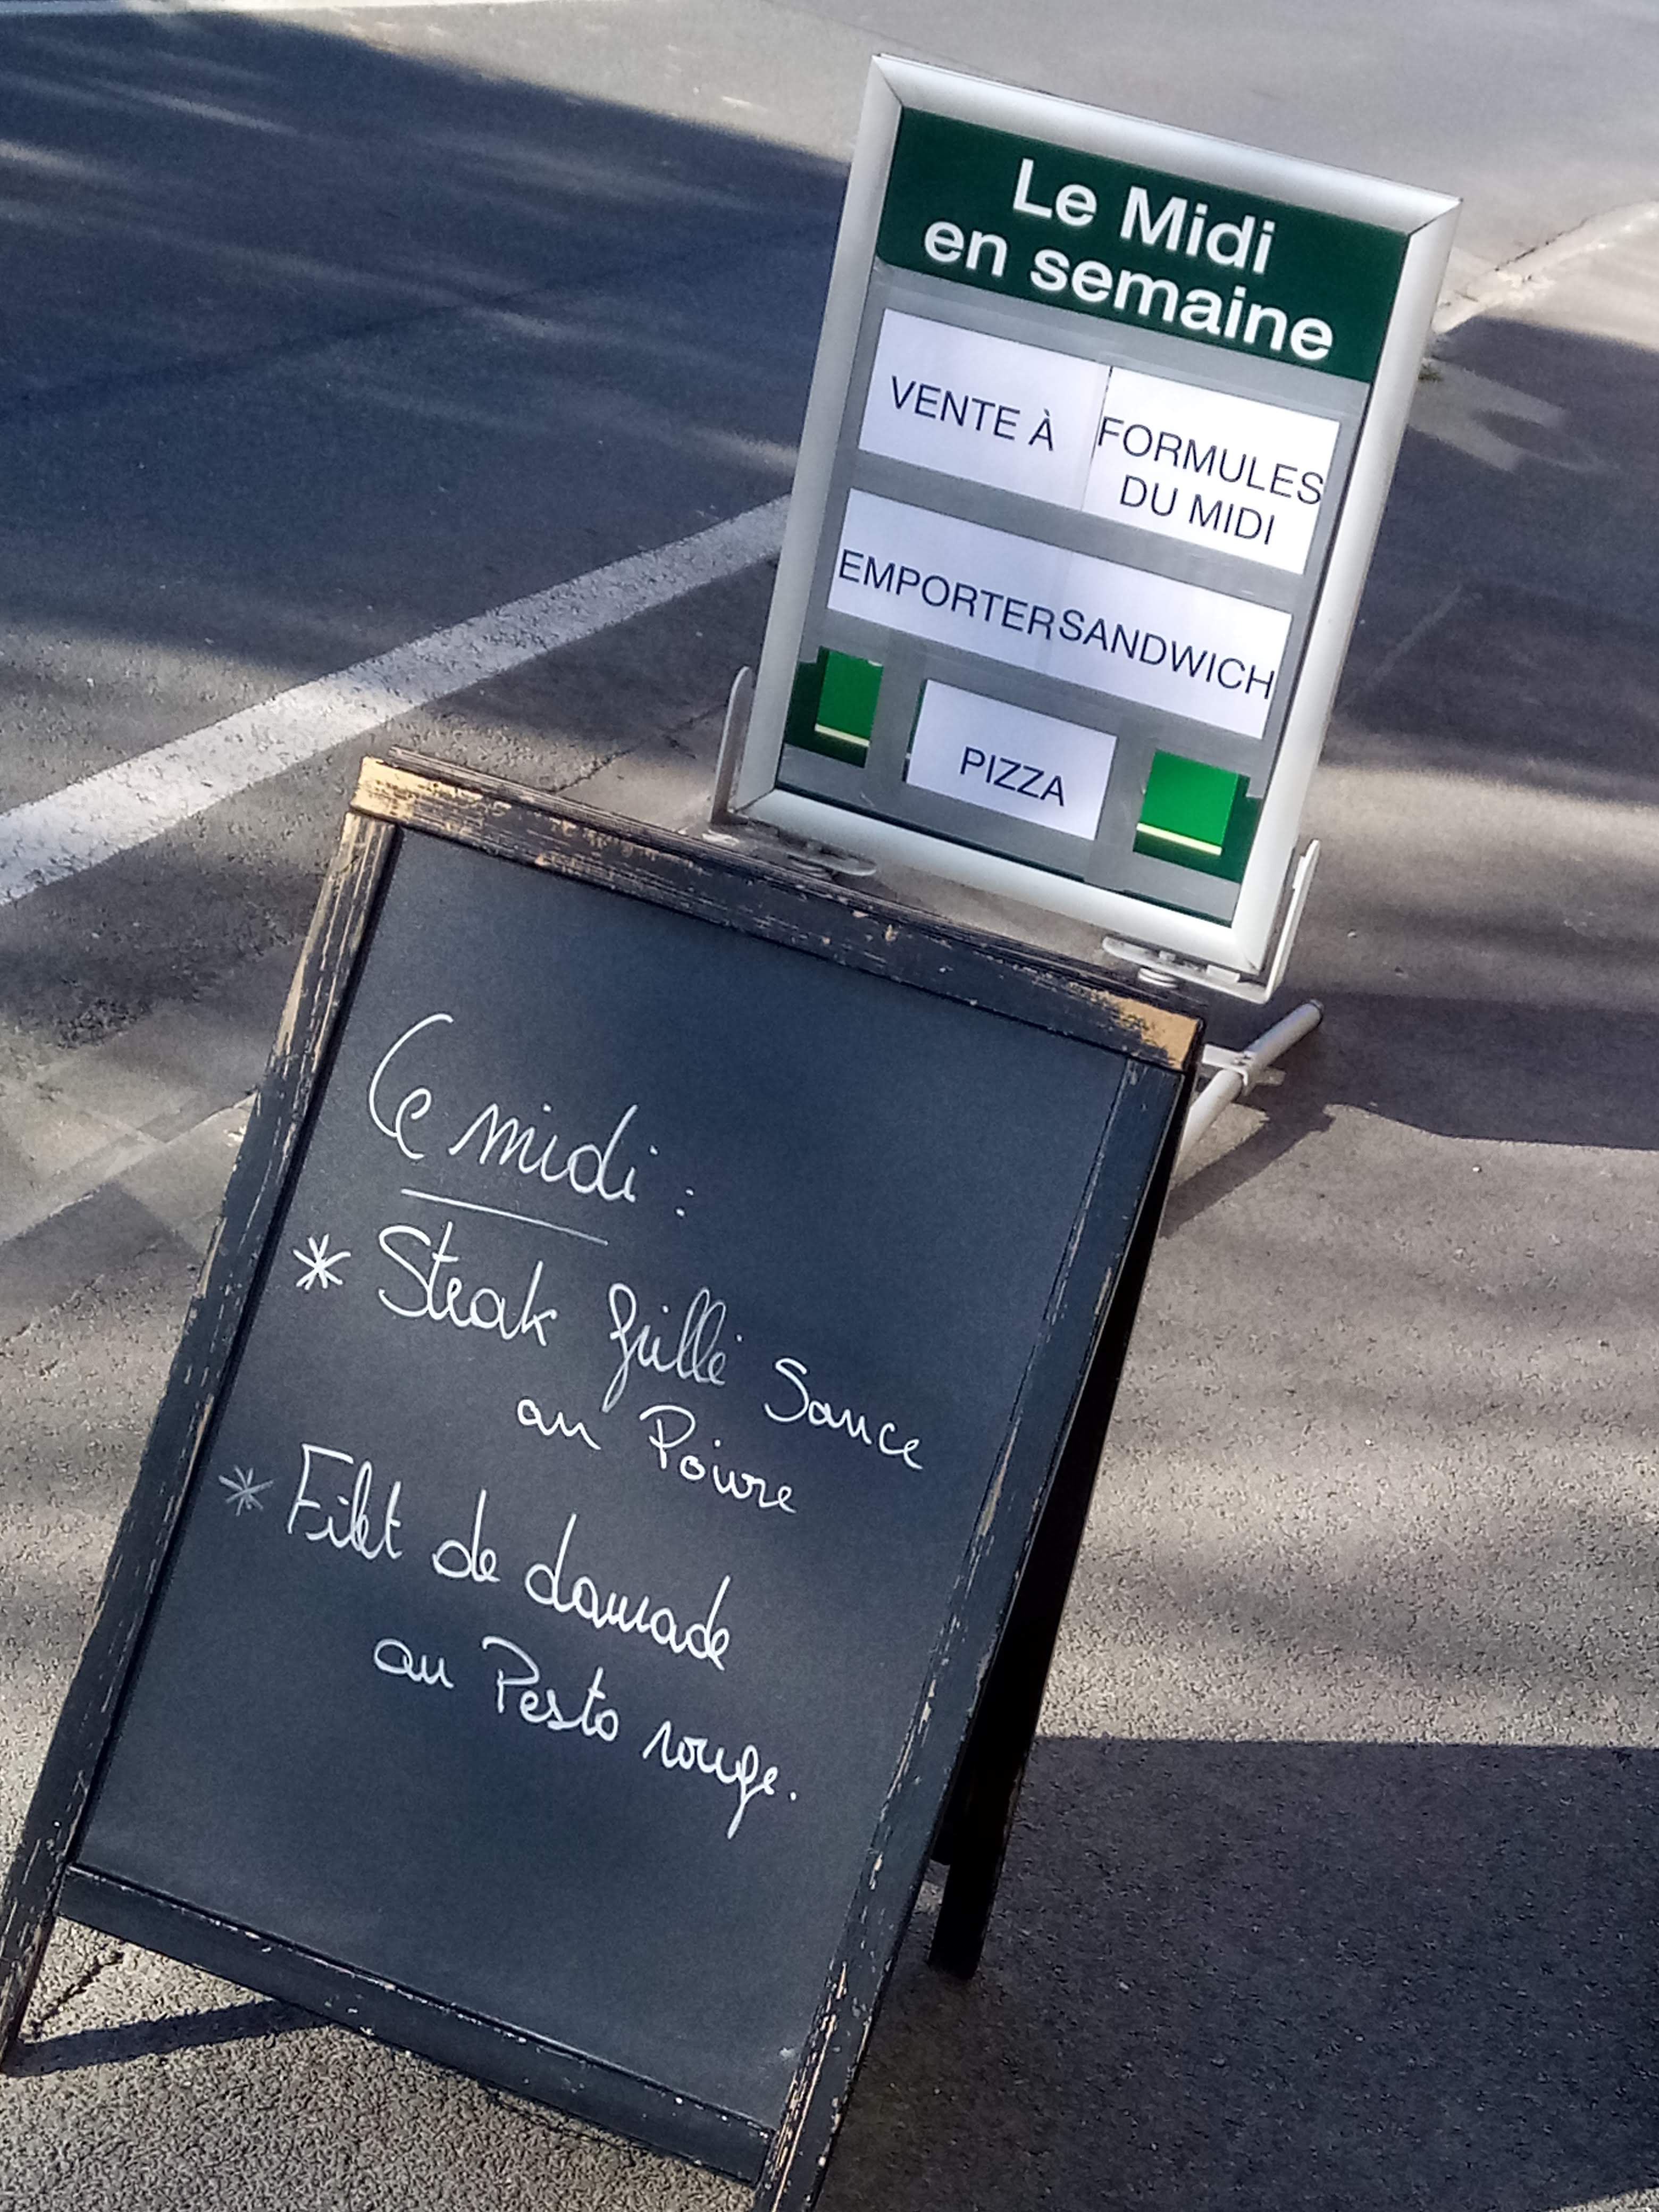 Le Midi
en semaine
VENTE À
FORMULES
DU MIDI
EMPORTER
SANDWICH
PIZZA
Ce midi :
* Steak grillé Sauce
au Poivre
* Filet de daurade
au Pesto rouge.